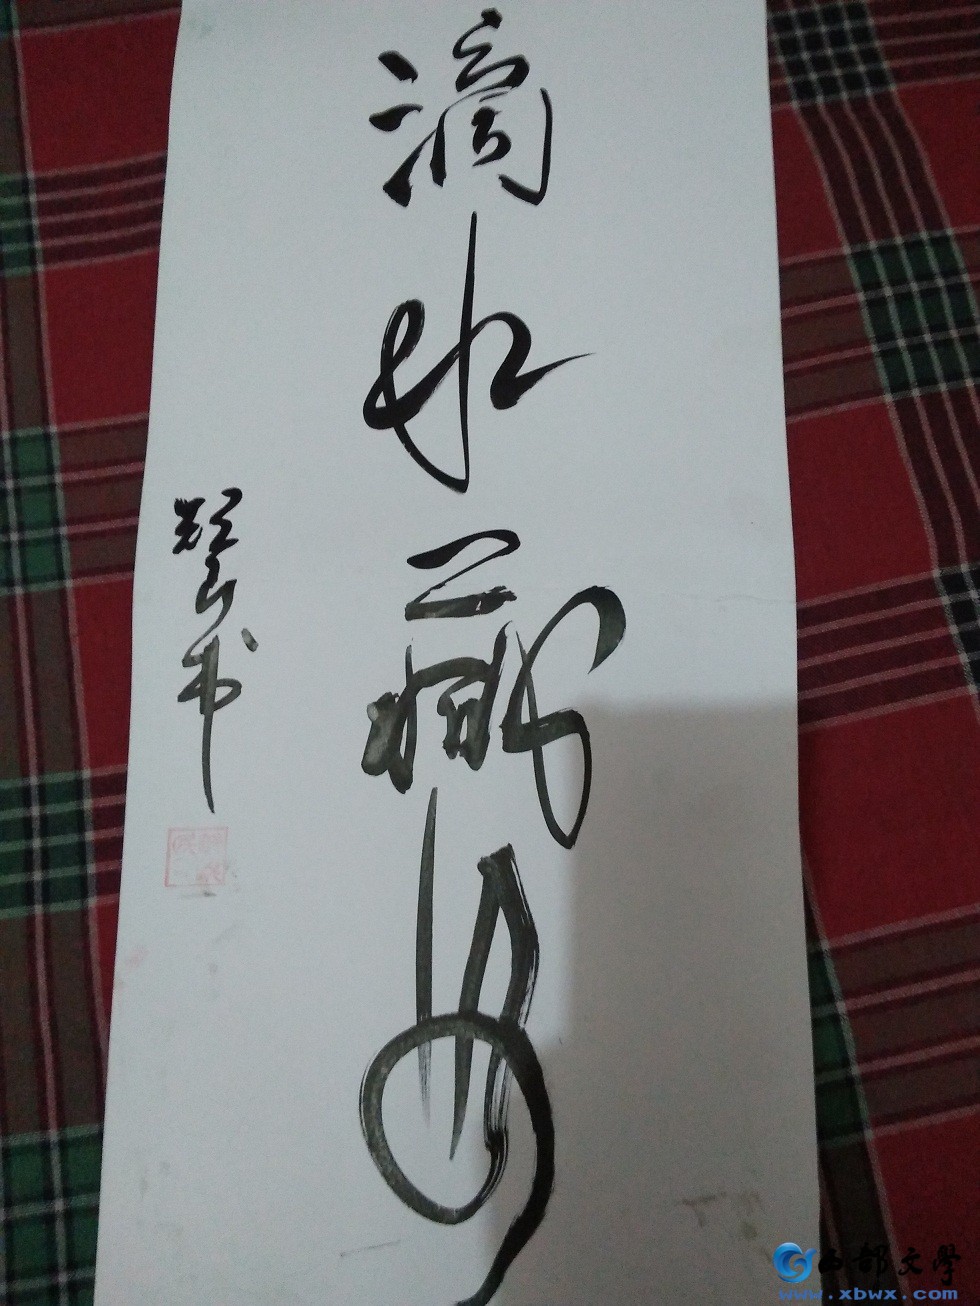 滴水藏海
书
西部文學
www.xbwx.com